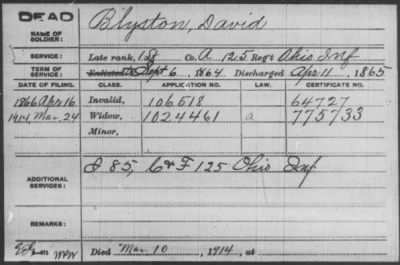 DEAD
NAME OF SOLDIER: Blyston, David
SERVICE: Late rank, Co. A 125 Reg't Ohio Inf
TERM OF SERVICE: Enlisted Sept 6, 1864 Discharged Apr 11, 1865
DATE OF FILING. CLASS. APPLICATION NO. LAW. CERTIFICATE NO.
1866 Apr. 16. Invalid, 106518 64727
1914 Mar. 24 Widow, 1024461 a 775733
Minor,
ADDITIONAL SERVICES: F 125 Ohio Inf
REMARKS:
Died Mar 10, 1914, at